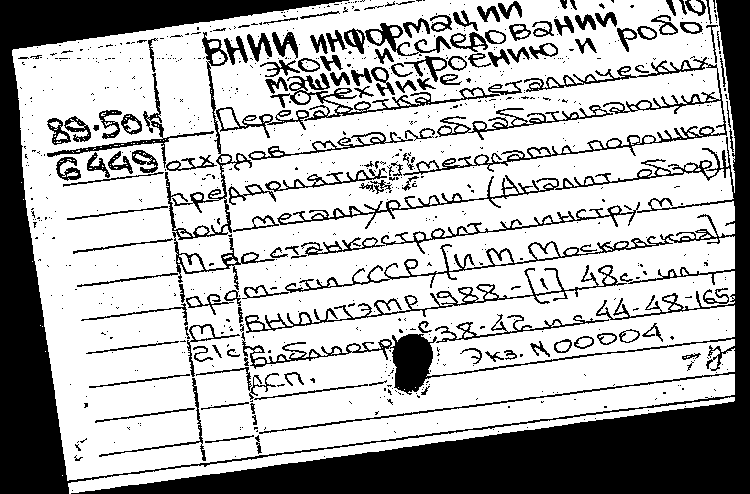 ВНИИ информации и по
экон. исследований.
машиностроению и робо-
тотехнике.
89-50к
6449
Переработка металлических
отходов металлообрабатывающих
предприятий методами порошко-
вой металлургии: (Аналит. обзор)
М-во станкостроит. и инструм.
пром-сти СССР; [И.М. Московская].
М.: ВНИИТЭМР, 1988.-[1], 48с.: ил.;
21см
Библиогр.: с.38-42 и с.44-48. 165
ДСП. Экз. N00004.